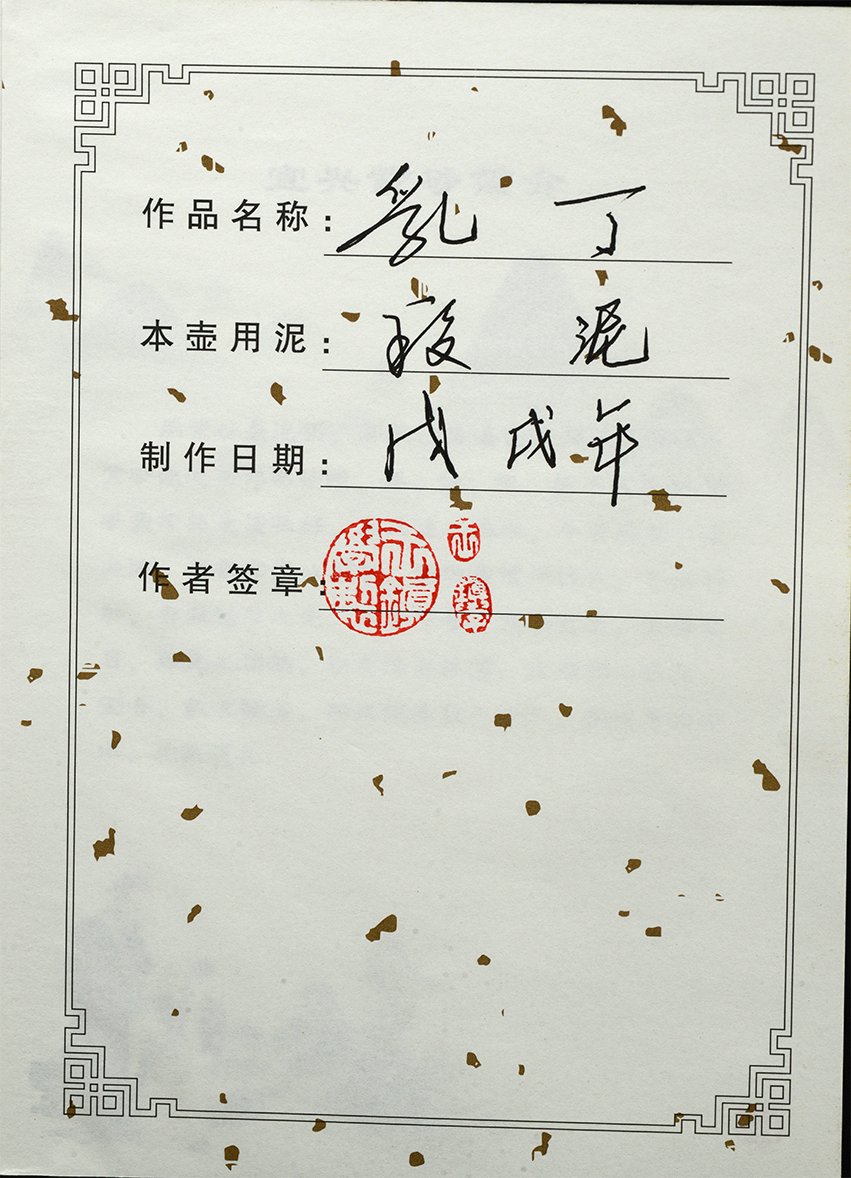 作品名称：乳丁
本壶用泥：段泥
制作日期：戊戌年
作者签章：
鎮學製